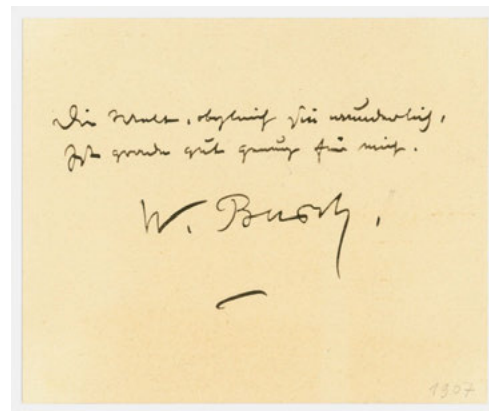 Die Welt, obgleich sie wunderlich,
Ist grade gut genug für mich.
W. Busch.
1907